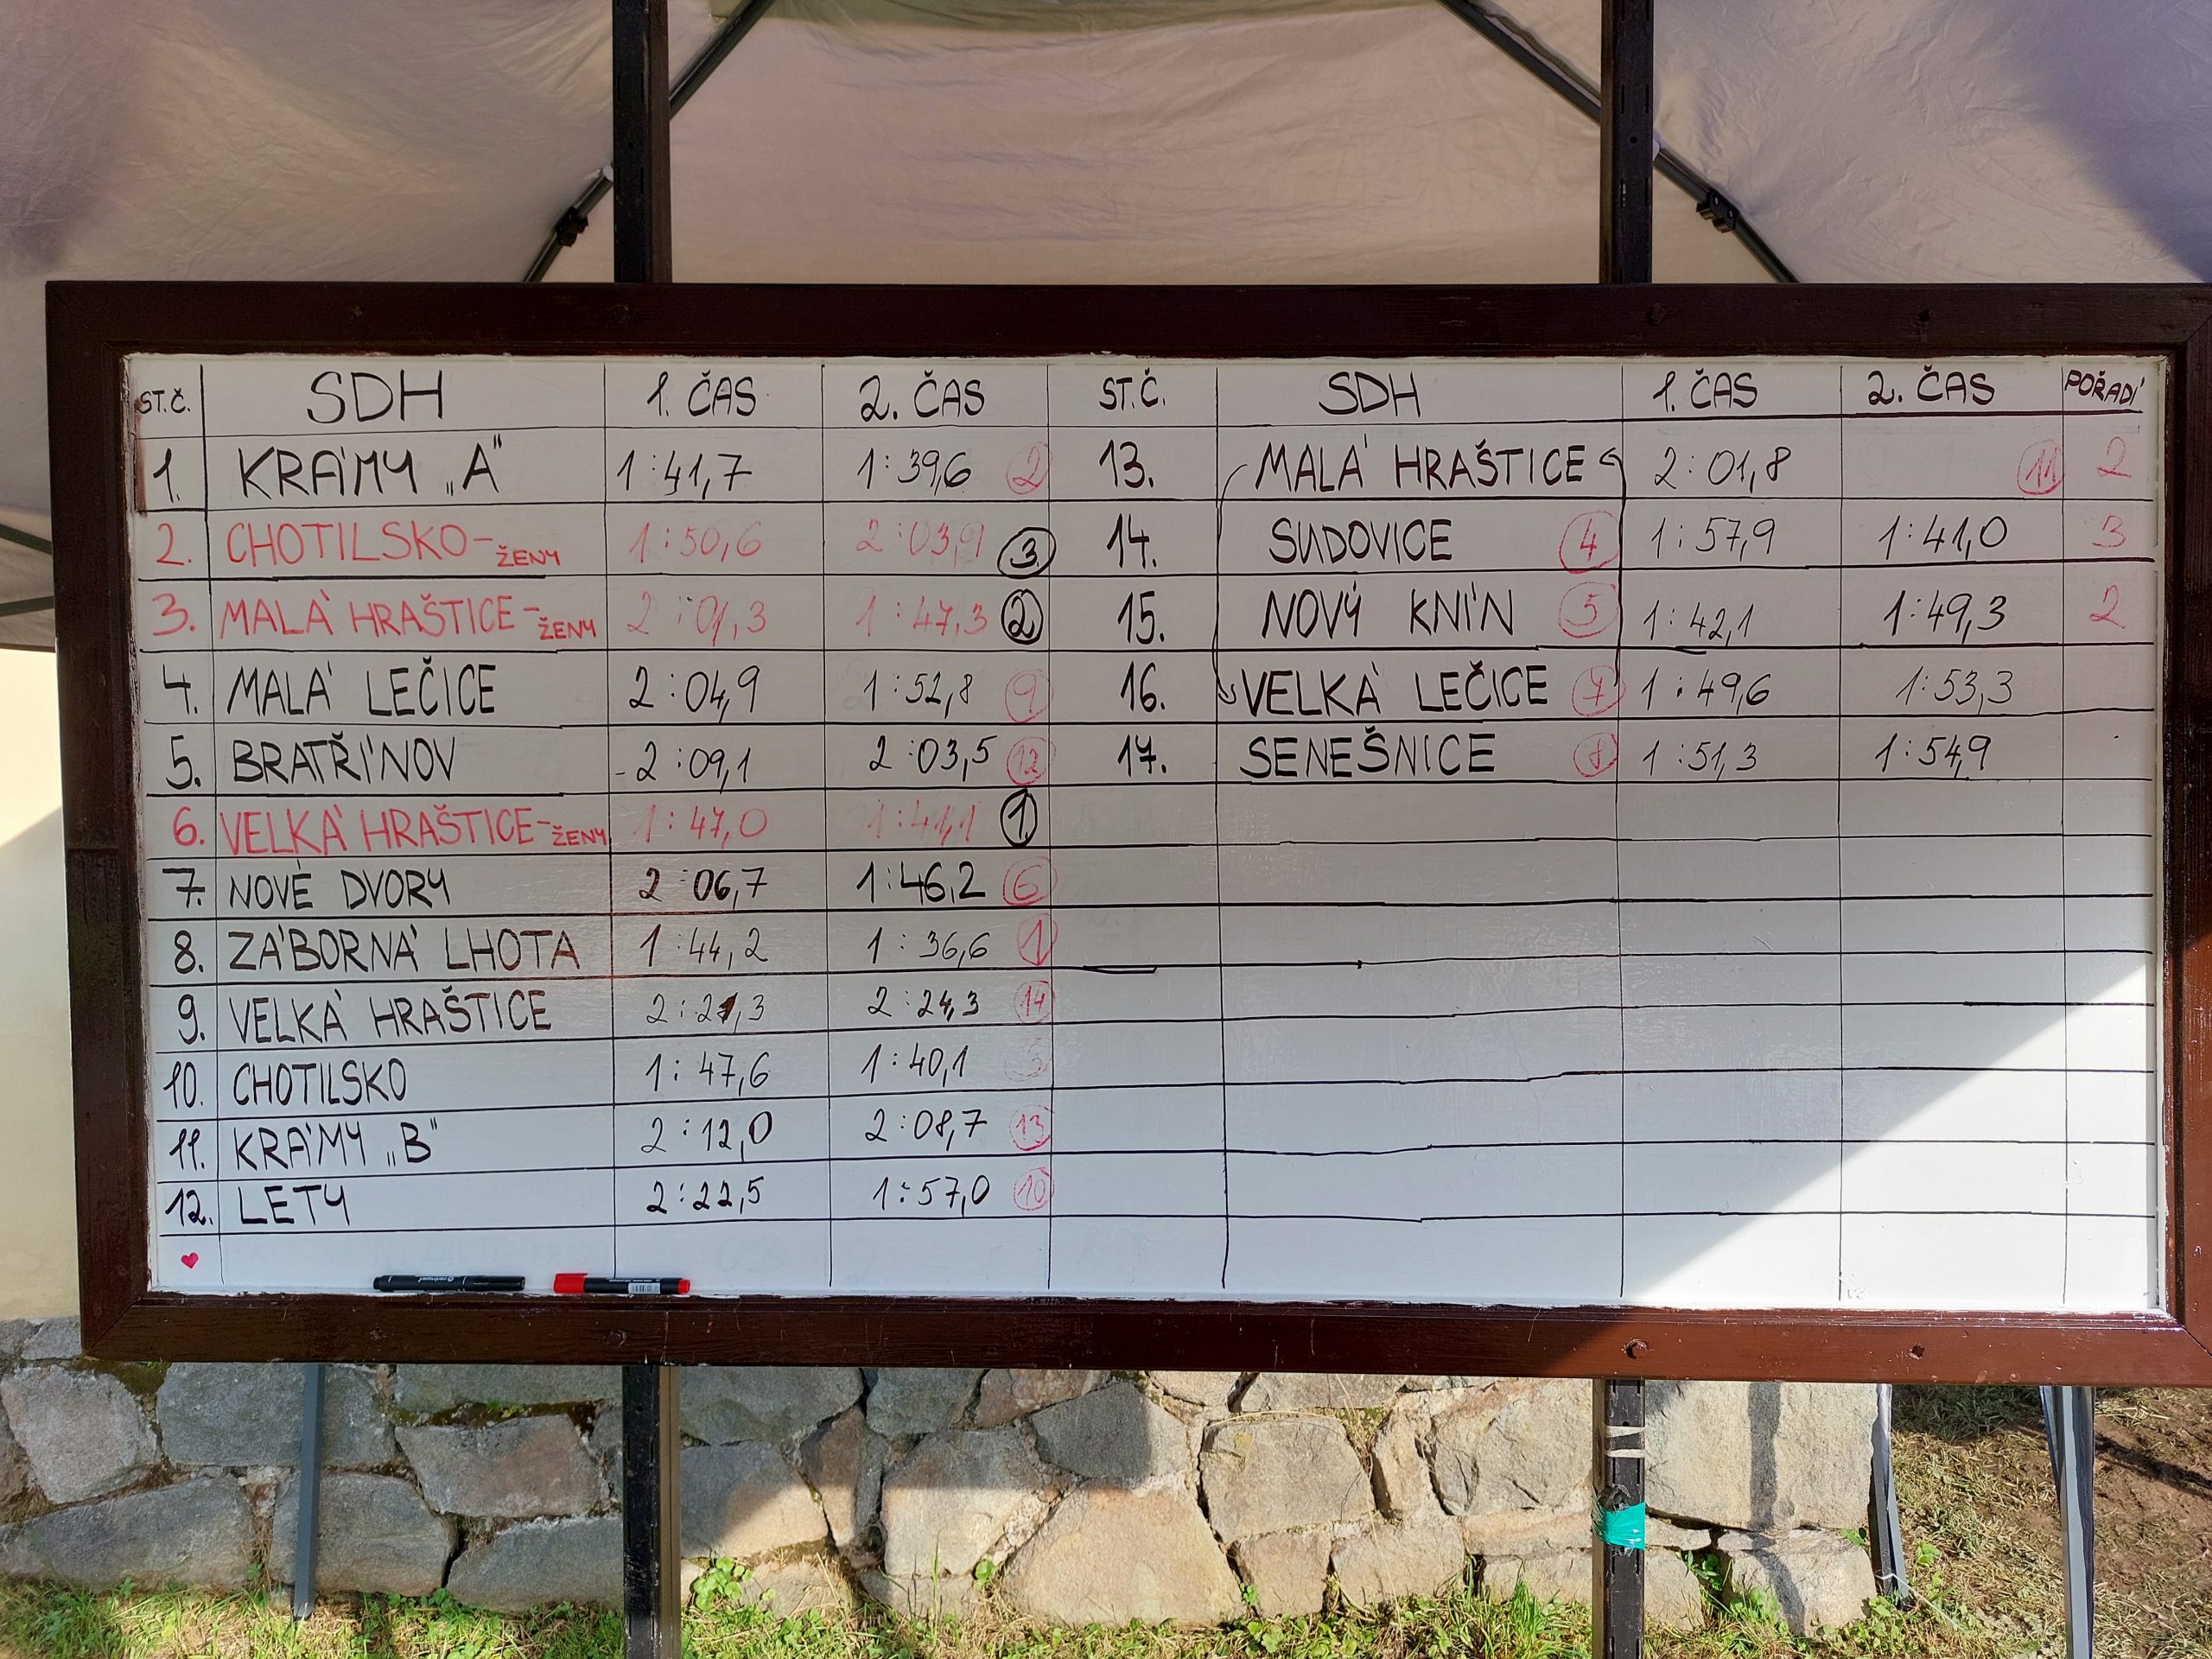 ST.Č. SDH 1. ČAS 2. ČAS ST.Č. SDH 1. ČAS 2. ČAS POŘADÍ
1. KRÁMY „A" 1:41,7 1:39,6 2 13. MALÁ HRAŠTICE 2:01,8 11 2
2. CHOTILSKO-ŽENY 1:50,6 2:03,9 3. 14. SUDOVICE 4 1:57,9 1:41,0 3
3. MALÁ HRAŠTICE-ŽENY 2:01,3 1:47,3 2. 15. NOVÝ KNÍN 5 1:42,1 1:49,3 2
4. MALÁ LEČICE 2:04,9 1:52,8 9 16. VELKÁ LEČICE 7 1:49,6 1:53,3
5. BRATŘÍNOV 2:09,1 2:03,5 12 17. SENEŠNICE 8 1:51,3 1:54,9
6. VELKÁ HRAŠTICE-ŽENY 1:47,0 1:41,1 1.
7. NOVÉ DVORY 2:06,7 1:46,2 6
8. ZÁBORNÁ LHOTA 1:44,2 1:36,6 1
9. VELKÁ HRAŠTICE 2:21,3 2:24,3 14
10. CHOTILSKO 1:47,6 1:40,1 3
11. KRÁMY „B" 2:12,0 2:08,7 13
12. LETY 2:22,5 1:57,0 10